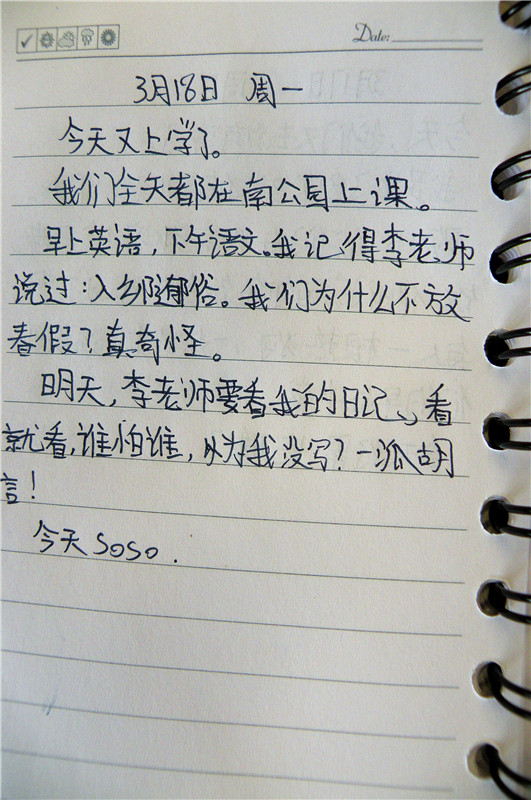 Date:
3月18日 周一
今天又上学了。
我们全天都在南公园上课。
早上英语,下午语文。我记得李老师
说过:入乡随俗。我们为什么不放
春假?真奇怪。
明天,李老师要看我的日记、看
就看,谁怕谁,以为我没写?一派胡
言!
今天soso.